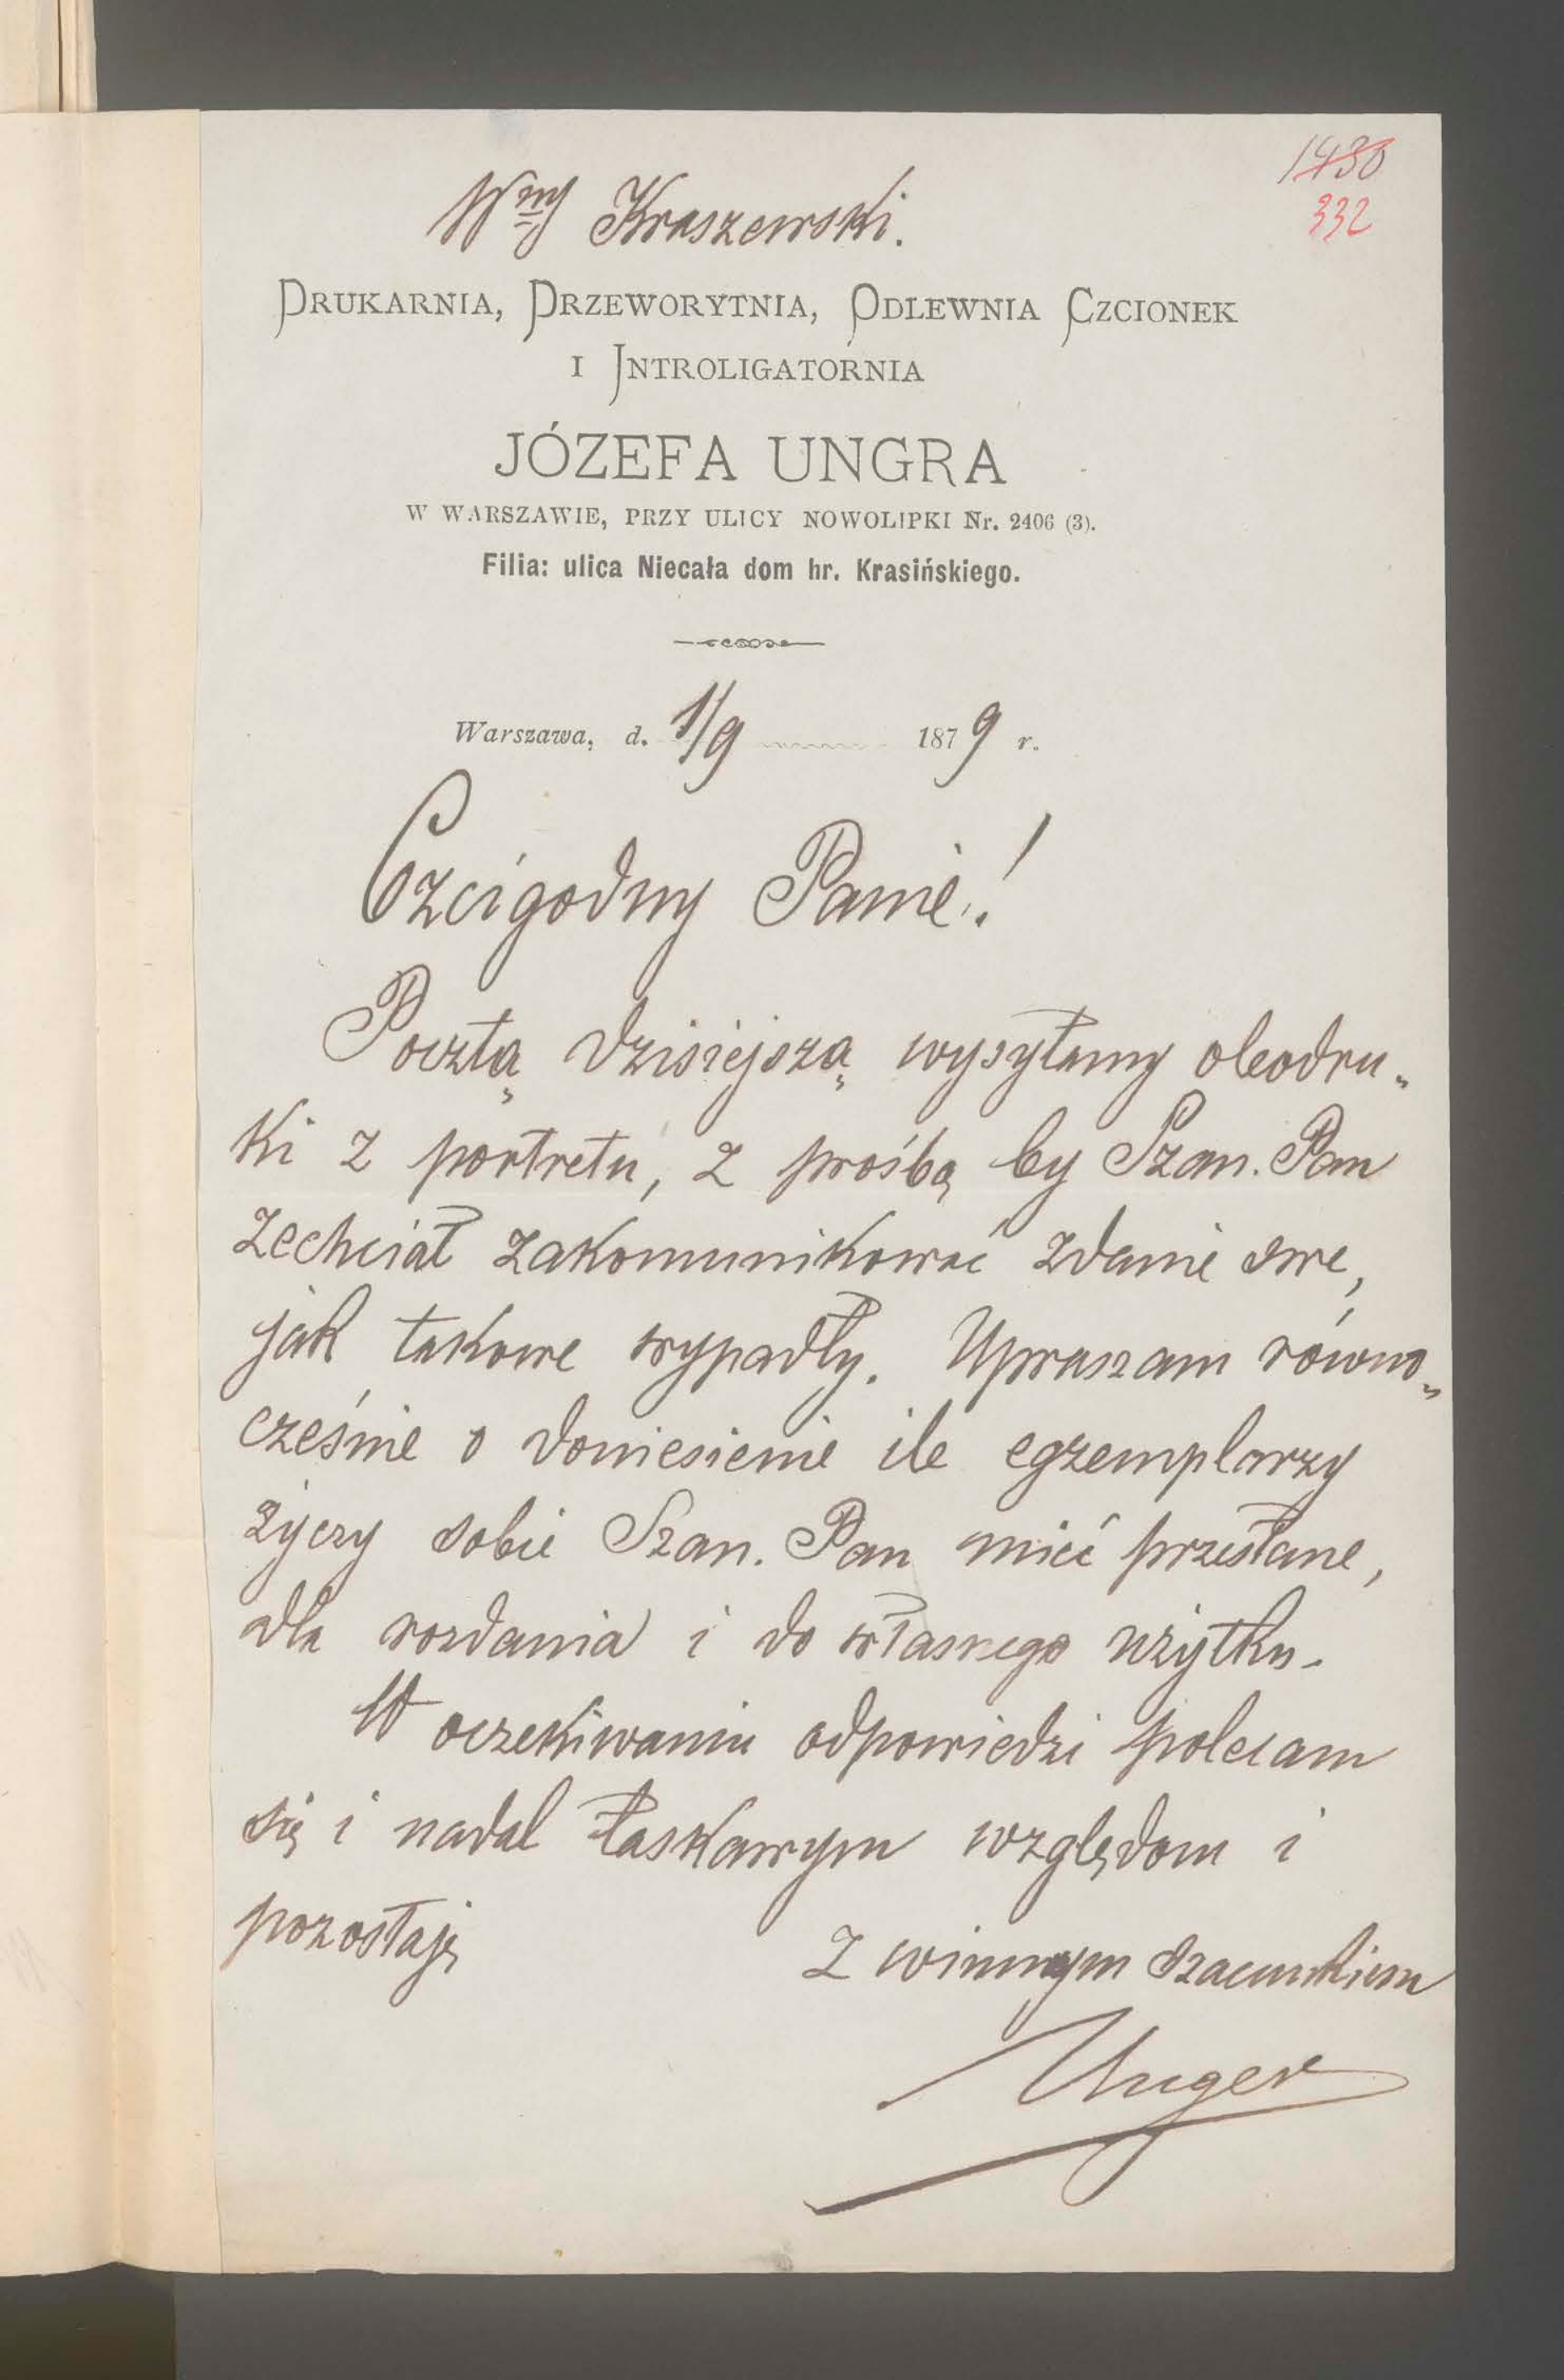 1430
332
Wny Kraszewski.
DRUKARNIA, DRZEWORYTNIA, ODLEWNIA CZCIONEK
I INTROLIGATORNIA
JÓZEFA UNGRA
W WARSZAWIE, PRZY ULICY NOWOLIPKI Nr. 2406 (3).
Filia: ulica Niecała dom hr. Krasińskiego.
Warszawa, d. 1/9 1879 r.
Czcigodny Panie!
Pocztą dzisiejszą wysyłamy oleodru„
ki z portretu, z prośbą by Szan. Pan
zechciał zakomunikować zdanie swe,
jak takowe wypadły. Upraszam równo„
cześnie o doniesienie ile egzemplarzy
życzy sobie Szan. Pan mieć przesłane,
dla rozdania i do własnego użytku.
W oczekiwaniu odpowiedzi polecam
się i nadal łaskawym względom i
pozostaję
Z winnym szacunkiem
Unger